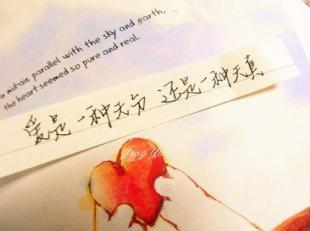 in mid-air, parallel with the sky and earth,
the heart seemed so pure and real.
爱是一种天分 还是一种天真
Jing Yu